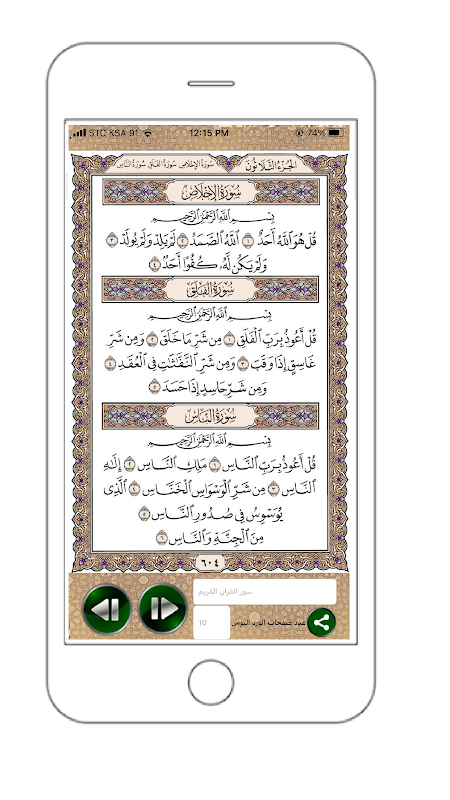 STC KSA 91 12:15 PM 74%
الجزء الثلاثون سورة الإخلاص سورة الفلق سورة الناس
سُورَةُ الإِخْلَاصِ
بِسْمِ اللَّهِ الرَّحْمَٰنِ الرَّحِيمِ
قُلْ هُوَ ٱللَّهُ أَحَدٌ ١ ٱللَّهُ ٱلصَّمَدُ ٢ لَمْ يَلِدْ وَلَمْ يُولَدْ ٣
وَلَمْ يَكُن لَّهُۥ كُفُوًا أَحَدٌۢ ٤
سُورَةُ الْفَلَقِ
بِسْمِ اللَّهِ الرَّحْمَٰنِ الرَّحِيمِ
قُلْ أَعُوذُ بِرَبِّ ٱلْفَلَقِ ١ مِن شَرِّ مَا خَلَقَ ٢ وَمِن شَرِّ
غَاسِقٍ إِذَا وَقَبَ ٣ وَمِن شَرِّ ٱلنَّفَّٰثَٰتِ فِي ٱلْعُقَدِ ٤
وَمِن شَرِّ حَاسِدٍ إِذَا حَسَدَ ٥
سُورَةُ النَّاسِ
بِسْمِ اللَّهِ الرَّحْمَٰنِ الرَّحِيمِ
قُلْ أَعُوذُ بِرَبِّ ٱلنَّاسِ ١ مَلِكِ ٱلنَّاسِ ٢ إِلَٰهِ
ٱلنَّاسِ ٣ مِن شَرِّ ٱلْوَسْوَاسِ ٱلْخَنَّاسِ ٤ ٱلَّذِي
يُوَسْوِسُ فِي صُدُورِ ٱلنَّاسِ ٥
مِنَ ٱلْجِنَّةِ وَٱلنَّاسِ ٦
٦٠٤
سور القرآن الكريم
عدد صفحات الورد اليومي
10